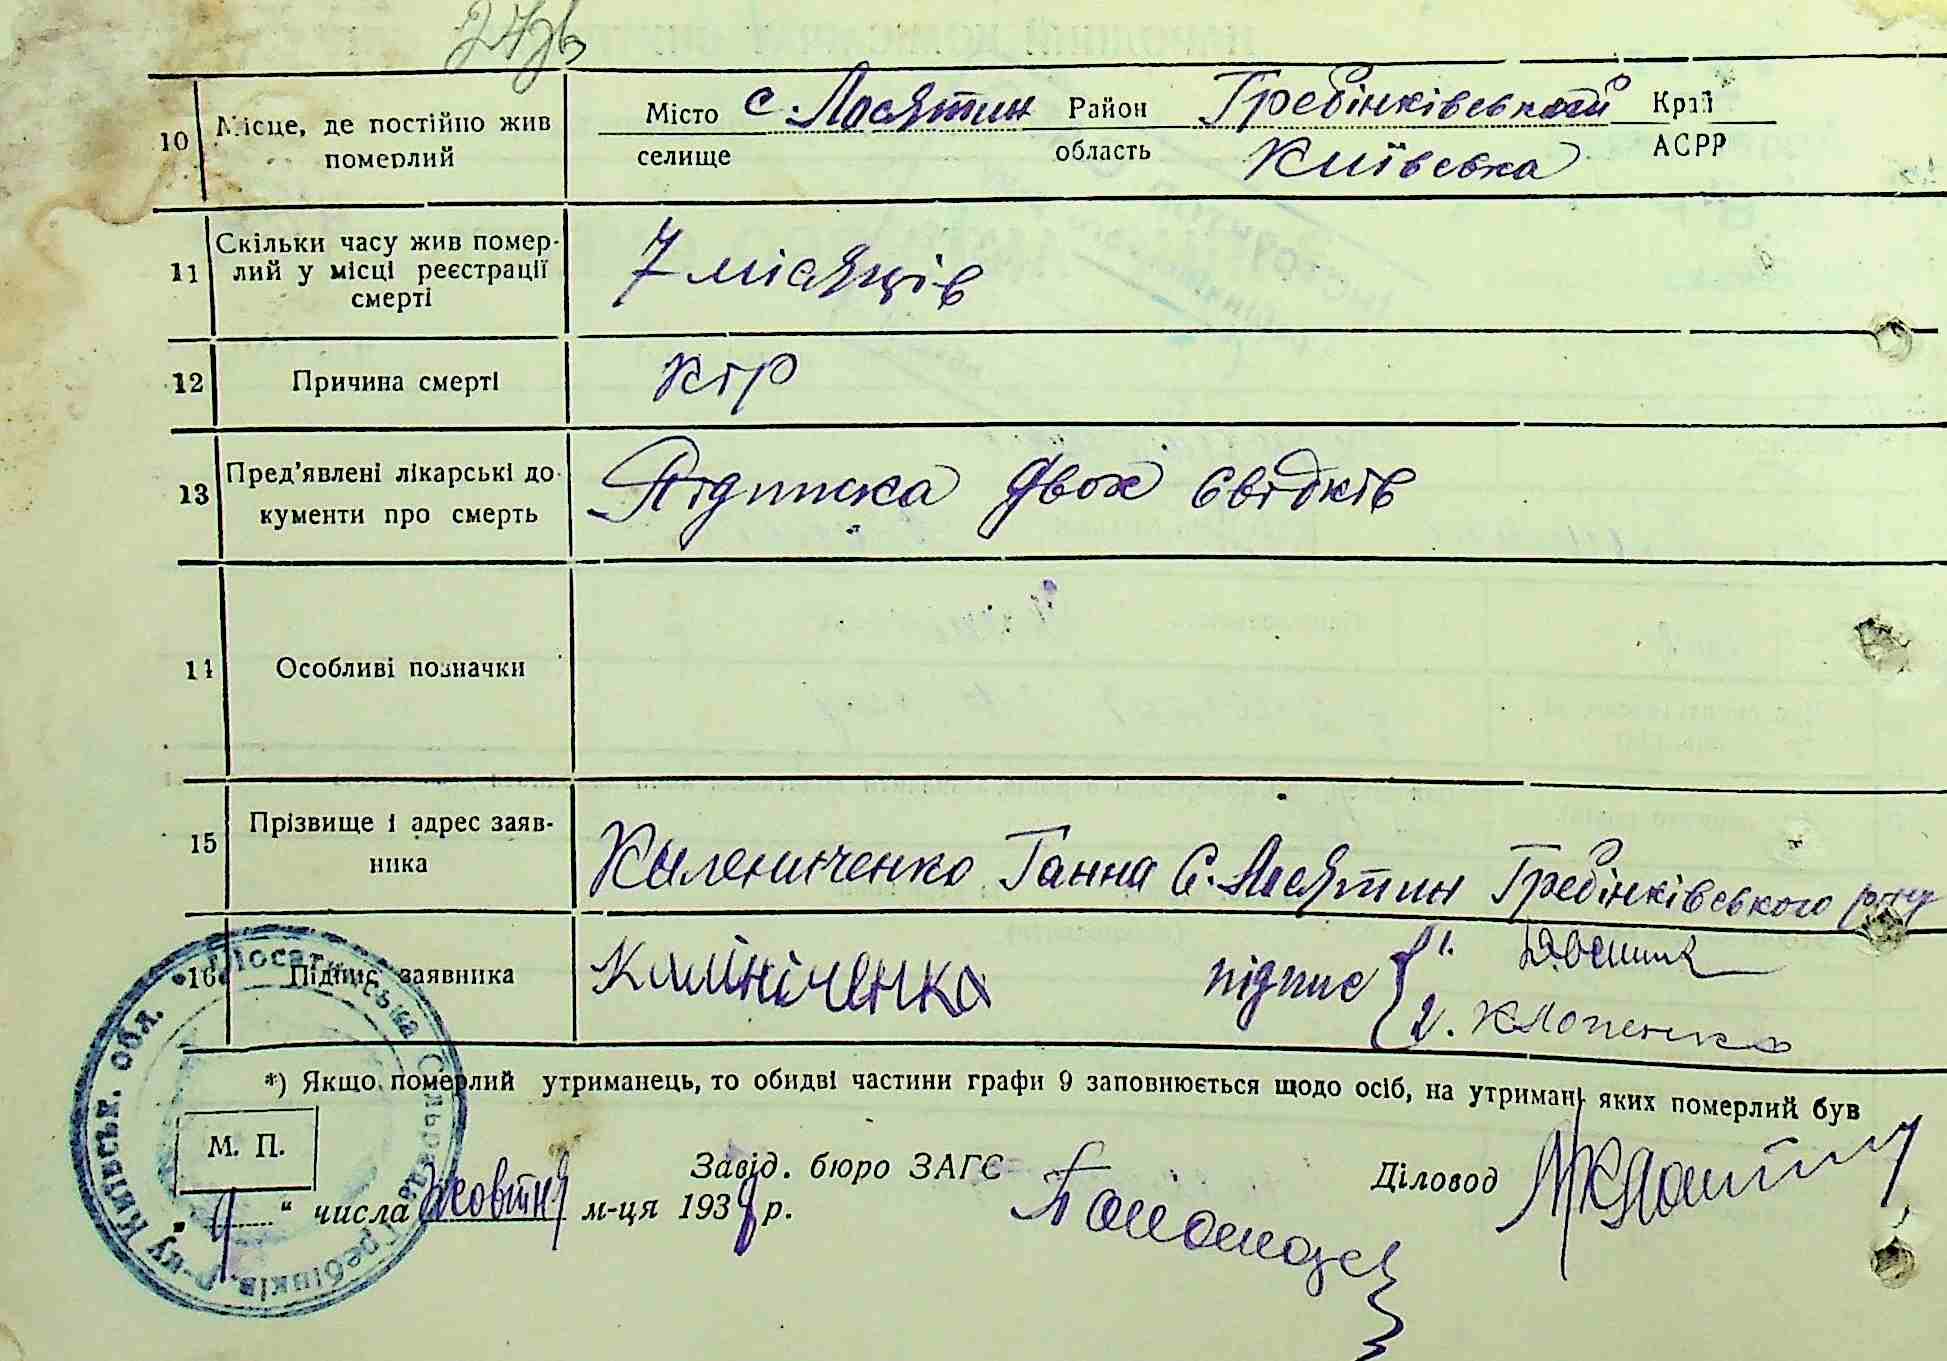 10 Місце, де постійно жив померлий
Місто с. Лосятин Район Гребінківський Край
селище область Київська АСРР
11 Скільки часу жив помер-
лий у місці реєстрації
смерті
7 місяців
12 Причина смерті
кір
13 Пред'явлені лікарські до-
кументи про смерть
Підписка двох свідків
14 Особливі позначки
15 Прізвище і адрес заяв-
ника
Ганна с. Лосятин Гребінківського р-ну
16 Підпис заявника
Калініченка підпис 1.
2. Клопенко
*) Якщо померлий утриманець, то обидві частини графи 9 заповнюється щодо осіб, на утримані яких померлий був
М. П.
Завід. бюро ЗАГС
Діловод
„ 9 “ числа жовтня м-ця 1939 р.
Лосятинська Сільрада Гребінків. р-ну Київськ. обл.